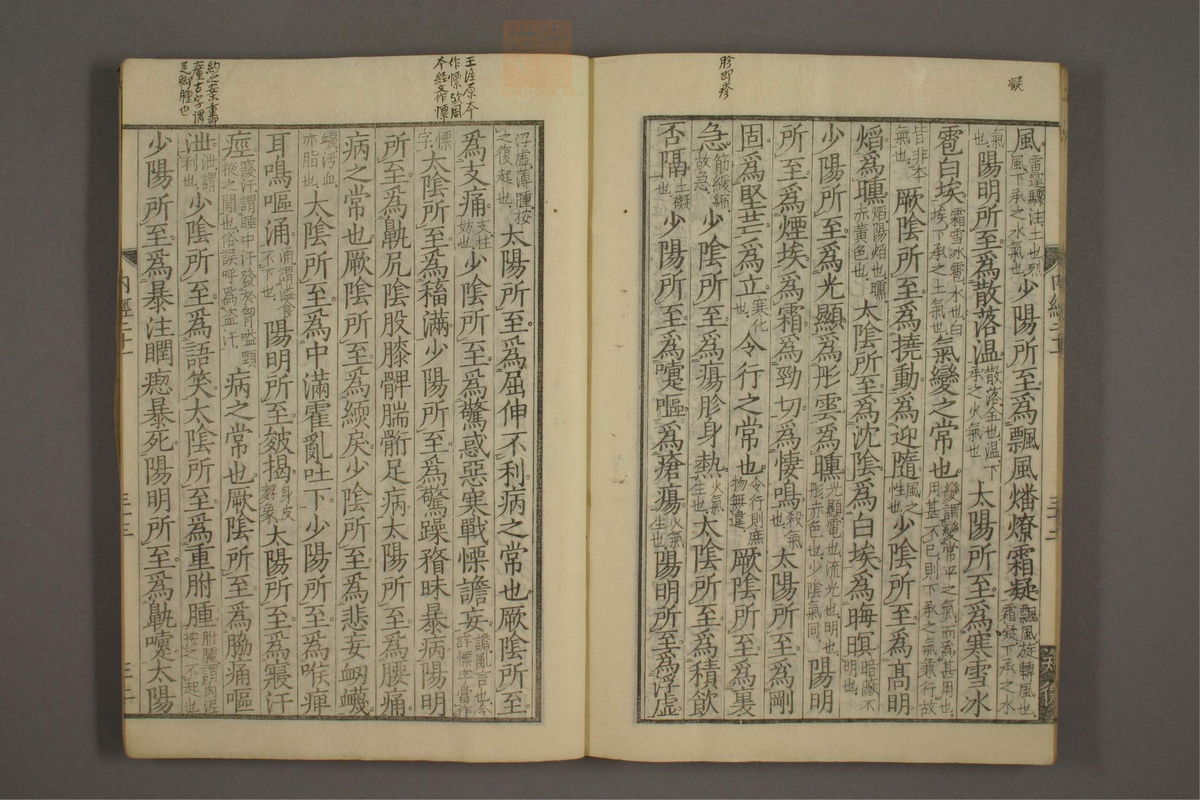 凝
胗即疹
風雷霆驟注土也烈風下承之水氣也少陽所至爲飄風燔燎霜凝飄風旋轉風也霜凝下承之水
氣也陽明所至爲散落溫散落金也溫下承之火氣也太陽所至爲寒雪冰
雹白埃霜雪冰雹水也白埃下承之土氣也氣變之常也變謂變常平之氣而爲甚用也用甚不已則下承之氣兼行故
皆非本氣也厥陰所至爲撓動爲迎隨風之性也少陰所至爲高明
熖爲曛熖陽焰也曛赤黃色也太陰所至爲沈陰爲白埃爲晦暝暗蔽不明也
少陽所至爲光顯爲彤雲爲曛光顯電也流光也明也彤赤色也少陰氣同陽明
所至爲煙埃爲霜爲勁切爲悽鳴殺氣也太陽所至爲剛
固爲堅芒爲立寒化也令行之常也令行則庶物無違厥陰所至爲裏
急筋緛縮故急少陰所至爲瘍胗身熱火氣生也太陰所至爲積飲
否隔土礙也少陽所至爲嚏嘔爲瘡瘍火氣生也陽明所至爲浮虛
王注原本作慄欤因本經文作慓
約之案重即瘇古字謂足脚腫也
浮虛薄腫按之復起也太陽所至爲屈伸不利病之常也厥陰所至
爲支痛支柱妨也少陰所至爲驚惑惡寒戰慄譫妄譫亂言也今詳慓字當作
慄字太陰所至爲稸滿少陽所至爲驚躁瞀昧暴病陽明
所至爲鼽尻陰股膝髀腨䯒足病太陽所至爲腰痛
病之常也厥陰所至爲緛戾少陰所至爲悲妄衂衊
衊汚血亦脂也太陰所至爲中滿霍亂吐下少陽所至爲喉痺
耳鳴嘔涌涌謂溢食不下也陽明所至皴揭身皮麩象太陽所至爲寢汗
痙寢汗謂睡中汗發於胷嗌頸掖之間也俗誤呼爲盜汗病之常也厥陰所至爲脇痛嘔
泄泄謂利也少陰所至爲語笑太陰所至爲重胕腫胕腫謂肉泥按之不起也
少陽所至爲暴注瞤瘛暴死陽明所至爲鼽嚏太陽